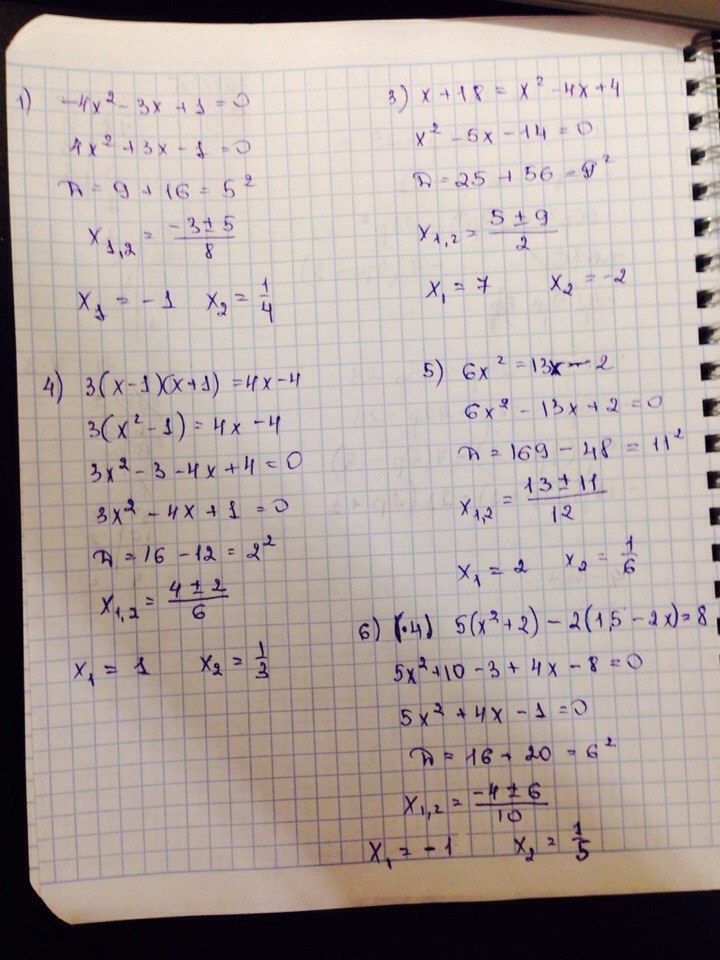 1) -4x² - 3x + 1 = 0
4x² + 3x - 1 = 0
D = 9 + 16 = 5²
x₁,₂ = (-3 ± 5)/8
x₁ = -1 x₂ = 1/4
3) x + 18 = x² - 4x + 4
x² - 5x - 14 = 0
D = 25 + 56 = 9²
x₁,₂ = (5 ± 9)/2
x₁ = 7 x₂ = -2
4) 3(x - 1)(x + 1) = 4x - 4
3(x² - 1) = 4x - 4
3x² - 3 - 4x + 4 = 0
3x² - 4x + 1 = 0
D = 16 - 12 = 2²
x₁,₂ = (4 ± 2)/6
x₁ = 1 x₂ = 1/3
5) 6x² = 13x - 2
6x² - 13x + 2 = 0
D = 169 - 48 = 11²
x₁,₂ = (13 ± 11)/12
x₁ = 2 x₂ = 1/6
6) 5(x² + 2) - 2(1,5 - 2x) = 8
5x² + 10 - 3 + 4x - 8 = 0
5x² + 4x - 1 = 0
D = 16 + 20 = 6²
x₁,₂ = (-4 ± 6)/10
x₁ = -1 x₂ = 1/5